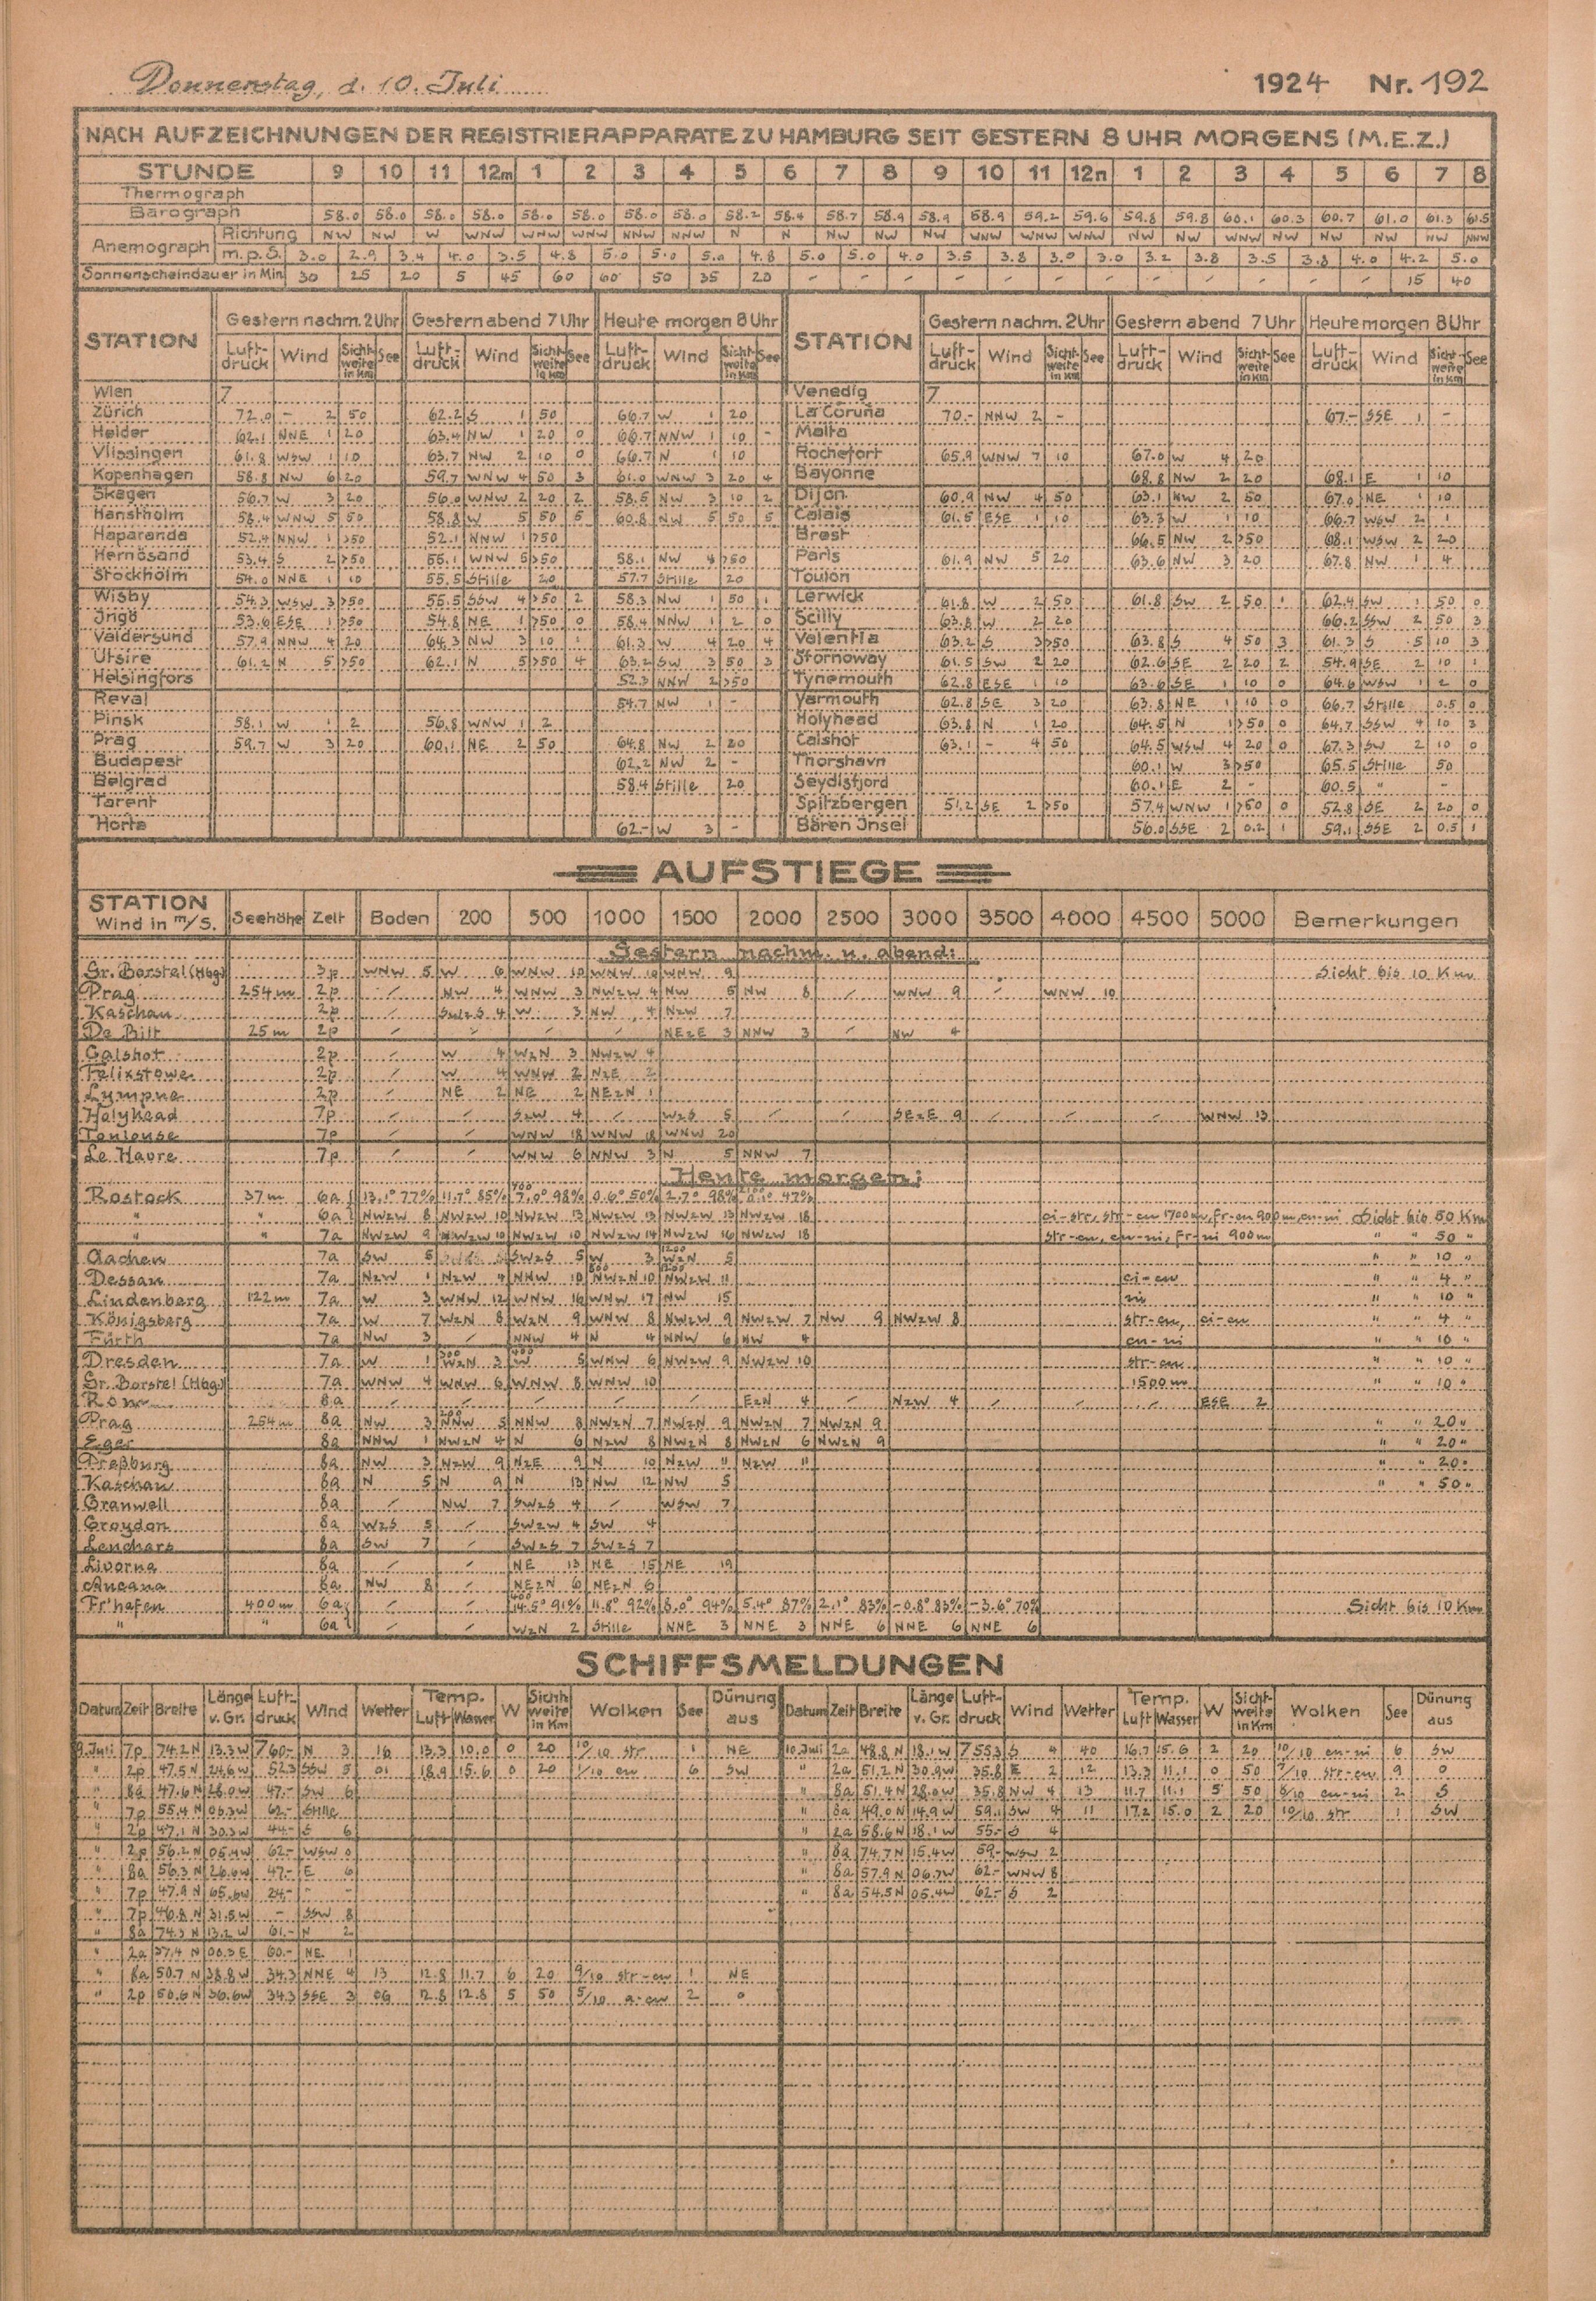 Donnerstag, d. 10. Juli 1924 Nr. 192
NACH AUFZEICHNUNGEN DER REGISTRIERAPPARATE ZU HAMBURG SEIT GESTERN 8 UHR MORGENS (M.E.Z.)
STUNDE 9 10 11 12m 1 2 3 4 5 6 7 8 9 10 11 12n 1 2 3 4 5 6 7 8
Thermograph
Barograph 58.0 58.0 58.0 58.0 58.0 58.0 58.0 58.0 58.2 58.4 58.7 58.9 58.9 58.9 59.2 59.6 59.8 59.8 60.1 60.3 60.7 61.0 61.3 61.5
Anemograph Richtung NW NW W WNW WNW WNW NNW NNW N N NW NW NW WNW WNW WNW NW NW WNW NW NW NW NW NNW
m.p.S. 3.0 2.9 3.4 4.0 3.5 4.8 5.0 5.0 5.0 4.8 5.0 5.0 4.0 3.5 3.8 3.0 3.0 3.2 3.8 3.5 3.8 4.0 4.2 5.0
Sonnenscheindauer in Min. 30 25 20 5 45 60 60 50 35 20 - - - - - - - - - - - - 15 40
STATION Gestern nachm. 2 Uhr Gestern abend 7 Uhr Heute morgen 8 Uhr STATION Gestern nachm. 2 Uhr Gestern abend 7 Uhr Heute morgen 8 Uhr
Luftdruck Wind Sichtweite in Km See Luftdruck Wind Sichtweite in Km See Luftdruck Wind Sichtweite in Km See Luftdruck Wind Sichtweite in Km See Luftdruck Wind Sichtweite in Km See Luftdruck Wind Sichtweite in Km See
Wien 7 Venedig 7
Zürich 72.0 - 2 50 62.2 S 1 50 66.7 W 1 20 La Coruña 70.- NNW 2 - 67.- SSE 1 -
Helder 62.1 NNE 1 20 63.4 NW 1 20 0 66.7 NNW 1 10 - Malta
Vlissingen 61.8 WSW 1 10 63.7 NW 2 10 0 66.7 N 1 10 Rochefort 65.9 WNW 7 10 67.0 W 4 20
Kopenhagen 58.8 NW 6 20 59.7 WNW 4 50 3 61.0 WNW 3 20 4 Bayonne 68.8 NW 2 20 68.1 E 1 10
Skagen 56.7 W 3 20 56.0 WNW 2 20 2 58.5 NW 3 10 2 Dijon 60.9 NW 4 50 63.1 NW 2 50 67.0 NE 1 10
Hanstholm 58.4 WNW 5 50 58.8 W 5 50 5 60.8 NW 5 50 5 Calais 61.5 ESE 1 10 63.3 W 1 10 66.7 WSW 2 1
Haparanda 52.4 NNW 1 >50 52.1 NNW 1 >50 Brest 66.5 NW 2 >50 68.1 WSW 2 20
Hernösand 53.4 S 2 >50 55.1 WNW 5 >50 58.1 NW 4 >50 Paris 61.9 NW 5 20 63.6 NW 3 20 67.8 NW 1 4
Stockholm 54.0 NNE 1 10 55.5 Stille 20 57.7 Stille 20 Toulon
Wisby 54.3 WSW 3 >50 55.5 SSW 4 >50 2 58.3 NW 1 50 1 Lerwick 61.8 W 2 50 61.8 SW 2 50 1 62.4 SW 1 50 0
Ingö 53.6 ESE 1 >50 54.8 NE 1 >50 0 58.4 NNW 1 2 0 Scilly 63.8 W 2 20 66.2 SSW 2 50 3
Valdersund 57.9 NNW 4 20 64.3 NW 3 10 1 61.3 W 4 20 4 Valentia 63.2 S 3 >50 63.8 S 4 50 3 61.3 S 5 10 3
Utsire 61.2 N 5 >50 62.1 N 5 >50 4 63.2 SW 3 50 3 Stornoway 61.5 SW 2 20 62.6 SE 2 20 2 54.9 SE 2 10 1
Helsingfors 52.3 NNW 2 >50 Tynemouth 62.8 ESE 1 10 63.6 SE 1 10 0 64.6 WSW 1 2 0
Reval 54.7 NW 1 - Yarmouth 62.8 SE 3 20 63.8 NE 1 10 0 66.7 Stille 0.5 0
Pinsk 58.1 W 1 2 56.8 WNW 1 2 Holyhead 63.8 N 1 20 64.5 N 1 >50 0 64.7 SSW 4 10 3
Prag 59.7 W 3 20 60.1 NE 2 50 64.8 NW 2 20 Calshot 63.1 - 4 50 64.5 WSW 4 20 0 67.3 SW 2 10 0
Budapest 62.2 NW 2 - Thorshavn 60.1 W 3 >50 65.5 Stille 50
Belgrad 58.4 Stille 20 Seydisfjord 60.1 E 2 - 60.5 " -
Tarent Spitzbergen 51.2 SE 2 >50 57.4 WNW 1 >50 0 52.8 SE 2 20 0
Horta 62.- W 3 - Bären Insel 56.0 SSE 2 0.2 1 59.1 SSE 2 0.5 1
AUFSTIEGE
STATION Wind in m/S. Seehöhe Zeit Boden 200 500 1000 1500 2000 2500 3000 3500 4000 4500 5000 Bemerkungen
Gestern nachm. u. abend:
Gr. Borstel (Hbg.) 3p WNW 5 W 6 WNW 10 WNW 10 WNW 9 Sicht bis 10 Km
Prag 254m 2p - NW 4 WNW 3 NWzW 4 NW 5 NW 8 - WNW 9 - WNW 10
Kaschau 2p 4 W 3 NW 4 NzW 7
De Bilt 25m 2p - - - - NEzE 3 NNW 3 - NW 4
Calshot 2p - W 4 WzN 3 NWzW 4
Felixstowe 2p - W 4 WNW 2 NzE 2
Lympne 2p NE 2 NE 2 NEzN 1
Holyhead 7p - - SzW 4 - WzS 5 - - SEzE 9 - - - WNW 13
Toulouse 7p - - WNW 18 WNW 18 WNW 20
Le Havre 7p - - WNW 6 NNW 3 N 5 NNW 7
Heute morgen:
Rostock 37m 6a 13.1° 77% 11.7° 85% 7.0° 98% 0.6° 50% 2.7° 98% 47%
" " 6a NWzW 8 NWzW 10 NWzW 13 NWzW 13 NWzW 13 NWzW 18 ci-str, str-cu 1700m, fr-cu 900m, cu-ni Sicht bis 50 Km
" 7a NWzW 9 NWzW 10 NWzW 10 NWzW 14 NWzW 16 NWzW 18 str-cu, cu-ni, fr-ni 900m " " 50 "
Aachen 7a SW 5 SWzS 5 W 3 1200 WzN 5 " " 10 "
Dessau 7a NzW 1 NzW 4 NNW 10 NWzN 10 NWzW 11 ci-cu " " 4 "
Lindenberg 122m 7a W 3 WNW 12 WNW 16 WNW 17 NW 15 ni " " 10 "
Königsberg 7a W 7 WzN 8 WzN 9 WNW 8 NWzW 9 NWzW 7 NW 9 NWzW 8 str-cu, ci-cu " " 4 "
Fürth 7a NW 3 - NNW 4 N 4 NNW 6 NW 4 cu-ni " " 10 "
Dresden 7a W 1 300 WzN 3 400 W 5 WNW 6 NWzW 9 NWzW 10 str-cu " " 10 "
Gr. Borstel (Hbg.) 7a WNW 4 WNW 6 WNW 8 WNW 10 1500m " " 10 "
Rom 8a - - - - - EzN 4 - NzW 4 - - - ESE 2
Prag 254m 8a NW 3 NNW 5 NNW 8 NWzN 7 NWzN 9 NWzN 7 NWzN 9 " " 20 "
Eger 8a NNW 1 NWzN 4 N 6 NzW 8 NWzN 8 NWzN 6 NWzN 9 " " 20 "
Preßburg 8a NW 3 NzW 9 NzE 9 N 10 NzW 11 NzW 11 " " 20 "
Kaschau 8a N 5 N 9 N 13 NW 12 NW 5 " " 50 "
Cranwell 8a - NW 7 SWzS 4 - WSW 7
Croydon 8a WzS 5 - SWzW 4 SW 4
Leuchars 8a SW 7 - SWzS 7 SWzS 7
Livorna 8a - - NE 13 NE 15 NE 19
Ancana 8a NW 8 - NEzN 6 NEzN 6
Fr'hafen 400m 6a - - 400 14.5° 91% 11.8° 92% 8.0° 94% 5.4° 87% 2.1° 83% -0.8° 83% -3.6° 70% Sicht bis 10 Km
" " 6a - - WzN 2 Stille NNE 3 NNE 3 NNE 6 NNE 6 NNE 6
SCHIFFSMELDUNGEN
Datum Zeit Breite Länge v. Gr. Luftdruck Wind Wetter Temp. Luft Wasser W Sichtweite in Km Wolken See Dünung aus Datum Zeit Breite Länge v. Gr. Luftdruck Wind Wetter Temp. Luft Wasser W Sichtweite in Km Wolken See Dünung aus
9. Juli 7p 74.2 N 13.3 W 760.- N 3 16 13.3 10.0 0 20 10/10 str 1 NE 10. Juli 2a 48.8 N 18.1 W 755.3 S 4 40 16.7 15.6 2 20 10/10 cu-ni 6 SW
" 2p 47.5 N 24.6 W 52.3 SSW 5 01 18.9 15.6 0 20 1/10 cu 6 SW " 2a 51.2 N 30.9 W 35.8 E 2 12 13.3 11.1 0 50 str-cu 9 0
" 8a 47.6 N 28.0 W 47.- SW 6 " 8a 51.4 N 28.0 W 35.8 NW 4 13 11.7 11.1 5 50 cu-ni 2 S
" 7p 55.4 N 06.3 W 62.- Stille " 8a 49.0 N 14.9 W 59.1 SW 4 11 17.2 15.0 2 20 10/10 str 1 SW
" 2p 47.1 N 30.3 W 44.- S 6 " 2a 58.6 N 18.1 W 55.- S 4
" 2p 56.2 N 05.4 W 62.- WSW 0 " 8a 74.7 N 15.4 W 59.- WSW 2
" 8a 56.3 N 26.6 W 47.- E 6 " 8a 57.9 N 06.7 W 62.- WNW 8
" 7p 47.9 N 65.6 W 24.- - - " 8a 54.5 N 05.4 W 62.- S 2
" 7p 46.8 N 31.5 W - SSW 8
" 8a 74.3 N 13.2 W 61.- N 2
" 2a 37.4 N 00.3 E 60.- NE 1
" 8a 50.7 N 38.8 W 34.3 NNE 4 13 12.8 11.7 6 20 9/10 str-cu 1 NE
" 2p 50.6 N 36.6 W 34.3 SSE 3 06 12.8 12.8 5 50 5/10 a-cu 2 0